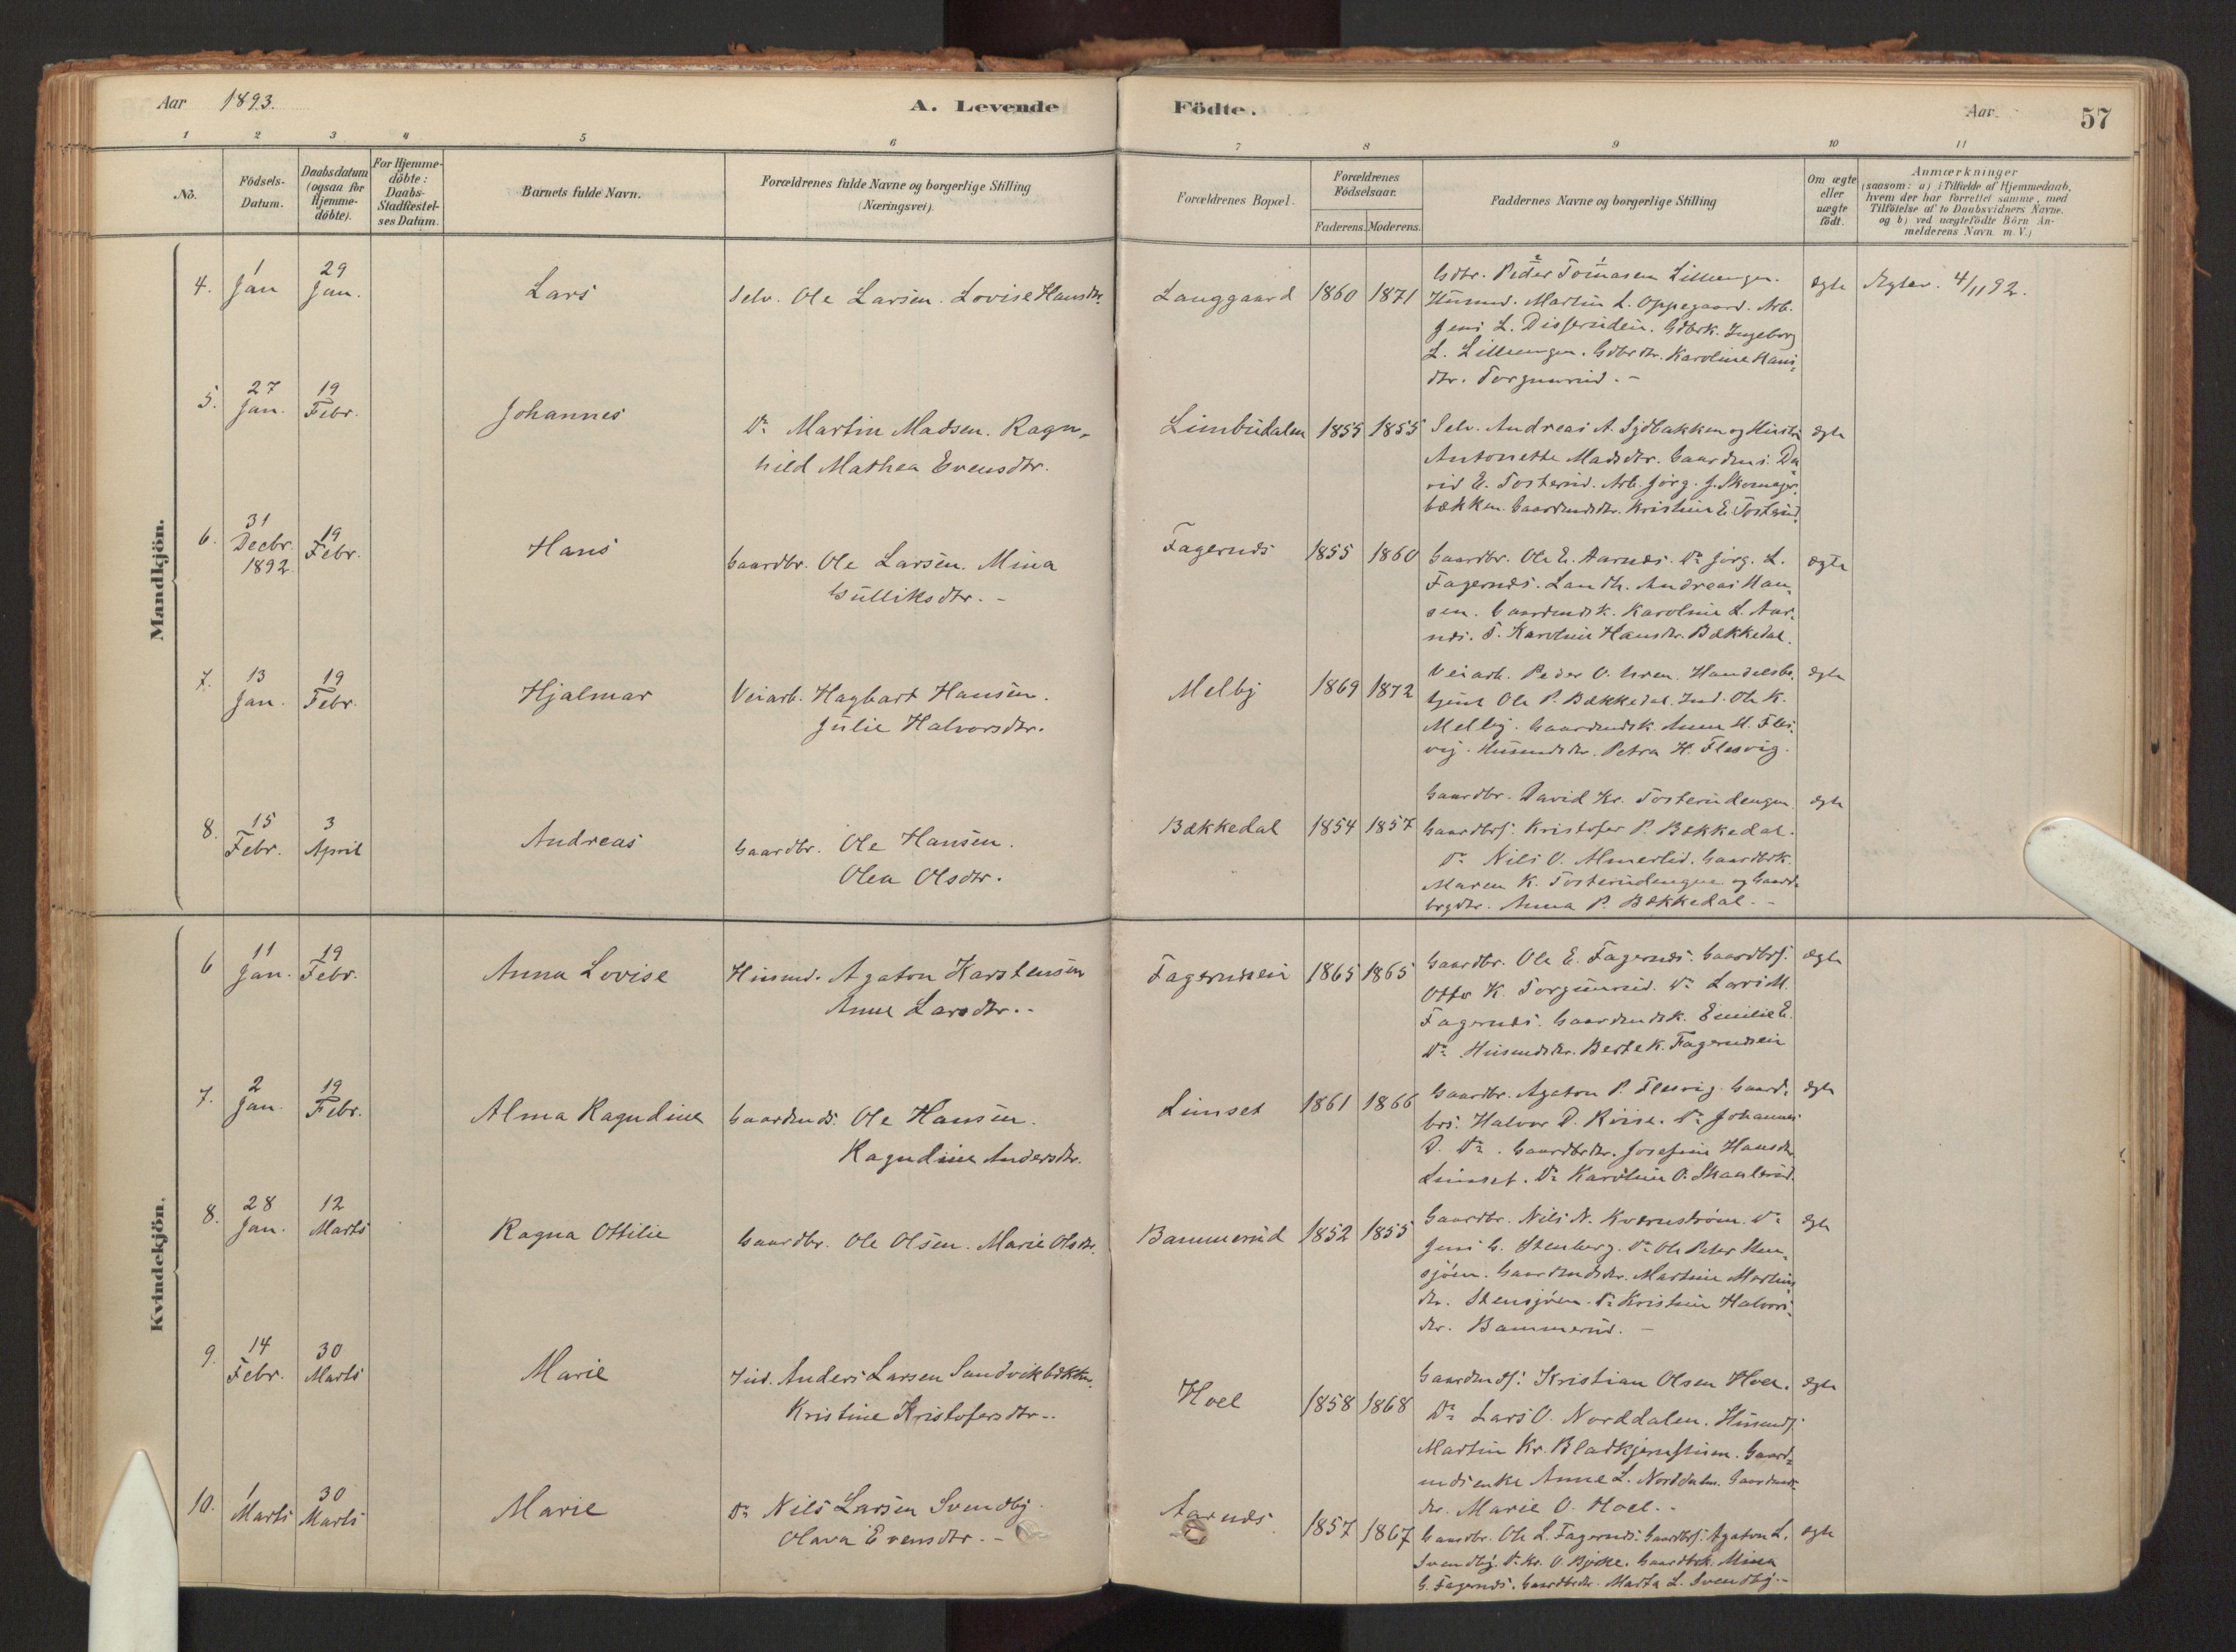 Aar 1893.
A. Levende Födte.
Aar
57
1 2 3 4 5 6 7 8 9 10 11
No.
Födsels-
Datum.
Daabsdatum
(ogsaa for
Hjemme-
döbte).
For Hjemme-
döbte:
Daabs-
Stadfæstel-
ses Datum.
Barnets fulde Navn.
Forældrenes fulde Navne og borgerlige Stilling
(Næringsvei).
Forældrenes Bopæl.
Forældrenes
Födselsaar.
Faderens. Moderens.
Faddernes Navne og borgerlige Stilling
Om ægte
eller
uægte
födt.
Anmærkninger
(saasom: a) i Tilfælde af Hjemmedaab,
hvem der har forrettet samme, med
Tilföielse af to Daabsvidners Navne.
og b) ved uægtefödte Börn An-
melderens Navn m. V.)
Mandkjön.
4. 1 Jan 29 Jan. Lars
Selv. Ole Larsen. Lovise Hansdtr.
Langgaard 1860 1871
Gdbr. Peder Tomasen Lilleengen.
Husmd. Martin L. Oppegaard. Arb.
Jens L. Disserudein. Gdbrk. Ingeborg
L. Lilleengen. Gdbrdtr. Karoline Hans
dtr. Torgunrud. -
ægte
Ægtev. 4/11 92.
5. 27 Jan. 19 Febr. Johannes
Do Martin Madsen. Ragn-
hild Mathea Evensdtr.
Limbudalen 1855 1855
Selv. Andreas A. Sydbakken og Hustru
Antonette Madsdtr. Gaardmds. Da
vid E. Tosterud. Arb. Jørg. J. Skomager-
bækken. Gaardmdsdtr. Kristine E. Tosterud.
ægte
6. 31 Decbr. 1892 19 Febr. Hans
Gaardbr. Ole Larsen. Mina
Gulliksdtr. -
Fagernæs 1855 1860
Gaardbr. Ole E. Aarnæs. Do Jørg. L.
Fagernæs. Landh. Andreas Han-
sen. Gaardmdsk. Karoline L. Aar-
næs. T. Karoline Hansdtr. Bækkedal.
ægte
7. 13 Jan. 19 Febr. Hjalmar
Veiarb. Hagbart Hansen.
Julie Halvorsdtr.
Melby 1869 1872
Veiarb. Peder O. Uren. Handelsbe-
tjent Ole P. Bækkedal. Ind. Ole K.
Melby. Gaardmdsk. Anne H. Fles-
vig. Husmdsdtr. Petra H. Flesvig.
ægte
8. 15 Febr. 3 April Andreas
Gaardbr. Ole Hansen.
Olea Olsdtr.
Bækkedal 1854 1857
Gaardbr. David Kr. Tosterudengen
Gaardbrs. Kristofer P. Bækkedal.
Do Nils O. Almerlid. Gaardbrk.
Maren K. Tosterudengen og Gaard-
brgdtr. Anna P. Bækkedal. -
ægte
Kvindekjön.
6 11 Jan. 19 Febr. Anna Lovise
Husmd. Agaton Karstensen
Anne Larsdtr. -
Fagernæsein 1865 1865
Gaardbr. Ole E. Fagernæs. Gaardbrs.
Otto K. Torgunrud. Do Lars M.
Fagernæs. Gaardmdsk. Emilie E.
Do Husmdsdtr. Berte K. Fagernæsein
ægte
7. 2 Jan. 19 Febr. Alma Ragndine
Gaardmds. Ole Hansen.
Ragndine Andersdtr.
Limset 1861 1866
Gaardbr. Agaton P. Flesvig. Gaard-
brs. Halvor D. Riise. Do Johannes
D. Do. Gaardbrdtr. Josefine Hansdtr.
Limset. Do Karoline O. Skaalerud.
ægte
8. 28 Jan. 12 Marts Ragna Ottilie
Gaardbr. Ole Olsen. Marie Olsdtr.
Bammerud 1852 1855
Gaardbr. Nils N. Kværnstrøm. Do
Jens G. Stenberg. Do Ole Peter Sten-
sjøen. Gaardmdsdtr. Martine Martins
dtr. Stensjøen. Do Kristine Halvors-
dtr. Bammerud. -
ægte
9. 14 Febr. 30 Marts Marie
Ind. Anders Larsen Sandvikbækken.
Kristine Kristofersdtr. -
Hoel 1858 1868
Gaardmds. Kristian Olsen Hoel.
Do Lars O. Norddalen. Husmds.
Martin Kr. Bladkjernstuen. Gaard-
mdsenke Anne L. Norddalen. Gaardmds-
dtr. Marie O. Hoel. -
ægte
10. 1 Marts 30 Marts Marie
Do Nils Larsen Svendby.
Olava Evensdtr. -
Aarnæs 1857 1867
Gaardbr. Ole L. Fagernæs. Gaardbrs. Agaton L.
Svendby. Do Kr. O. Bjøke. Gaardbrk. Mina
G. Fagernæs. Gaardbrdtr. Marta L. Svendby. -
ægte